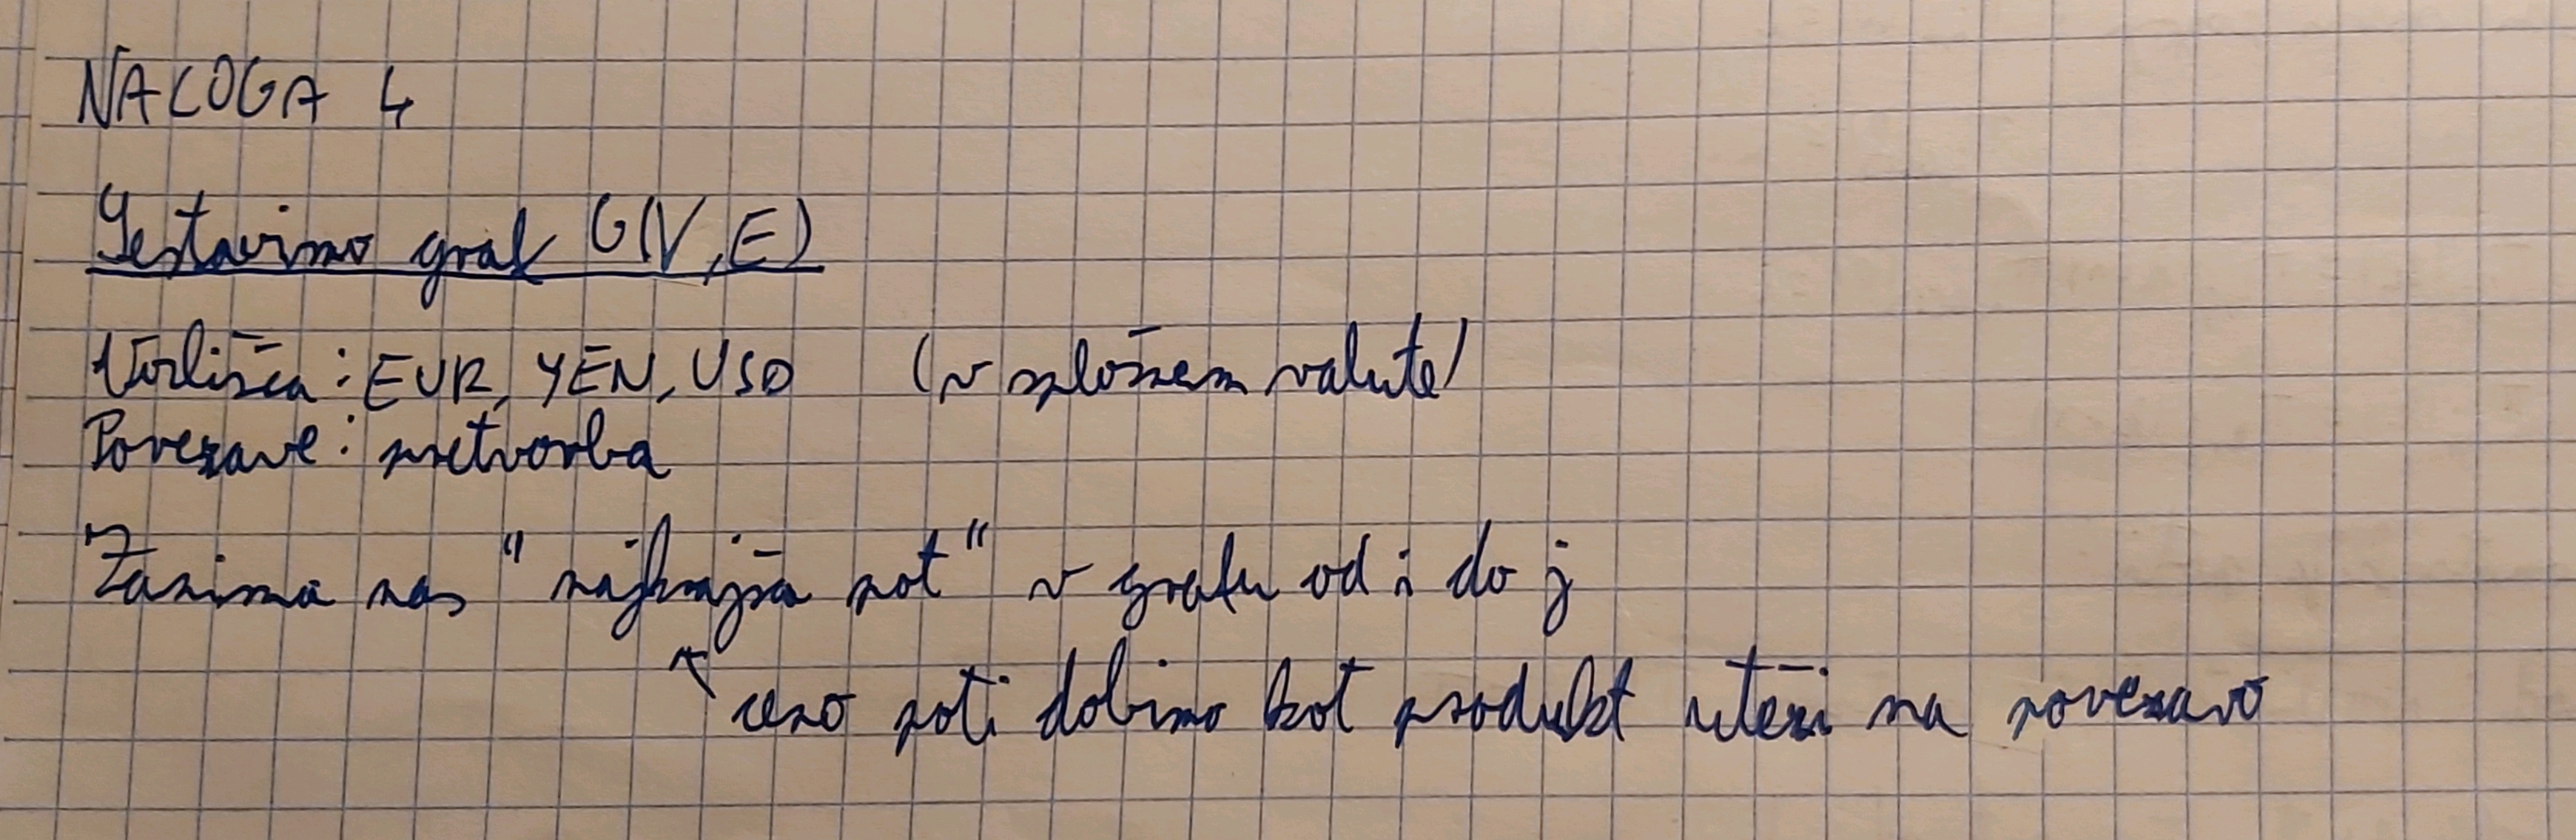 NALOGA 4
Sestavimo graf G(V,E)
Vozlišča: EUR, YEN, USD (v splošnem valute)
Povezave: pretvorba
Zanima nas "najkrajša pot" v grafu od i do j
ceno poti dobimo kot produkt uteži na povezavo